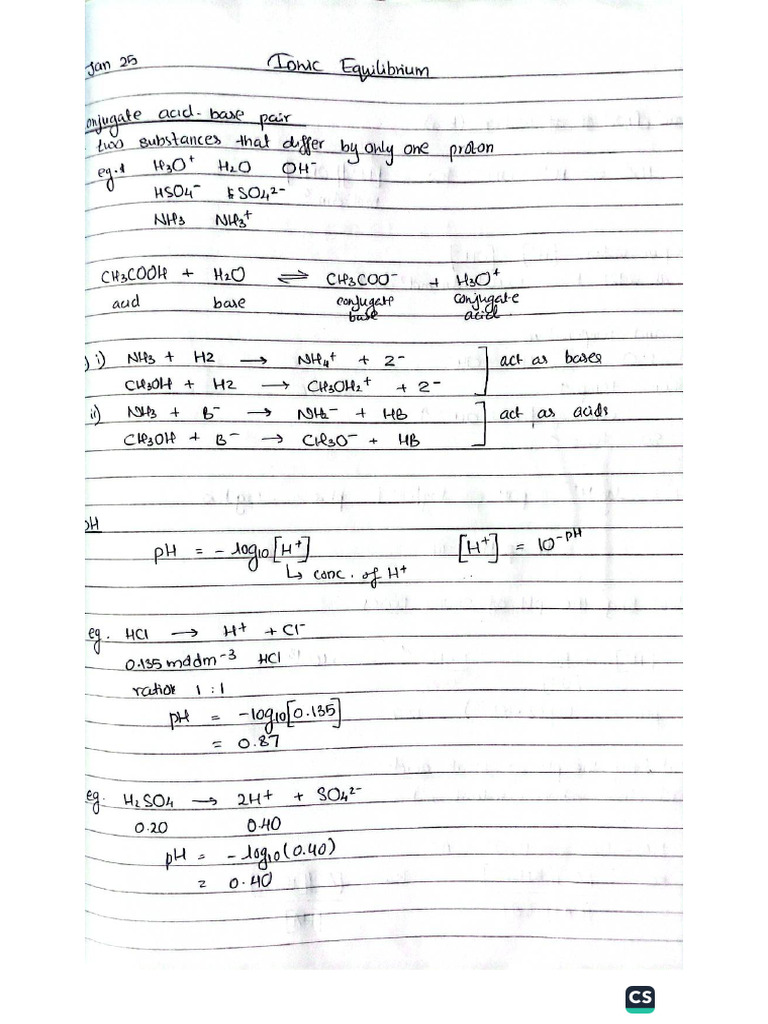 Jan 25 Ionic Equilibrium
onjugate acid-base pair
two substances that differ by only one proton
eg.1 H3O+ H2O OH-
HSO4- SO4²-
NH3 NH3+
CH3COOH + H2O ⇌ CH3COO- + H3O+
acid base conjugate base conjugate acid
) i) NH3 + HZ → NH4+ + Z- ] act as bases
CH3OH + HZ → CH3OH2+ + Z-
ii) NH3 + B- → NH2- + HB ] act as acids
CH3OH + B- → CH3O- + HB
pH
pH = -log10[H+] [H+] = 10^-pH
↳ conc. of H+
eg. HCl → H+ + Cl-
0.135 moldm-3 HCl
ratio 1 : 1
pH = -log10[0.135]
= 0.87
eg. H2SO4 → 2H+ + SO4²-
0.20 0.40
pH = -log10(0.40)
= 0.40
CS